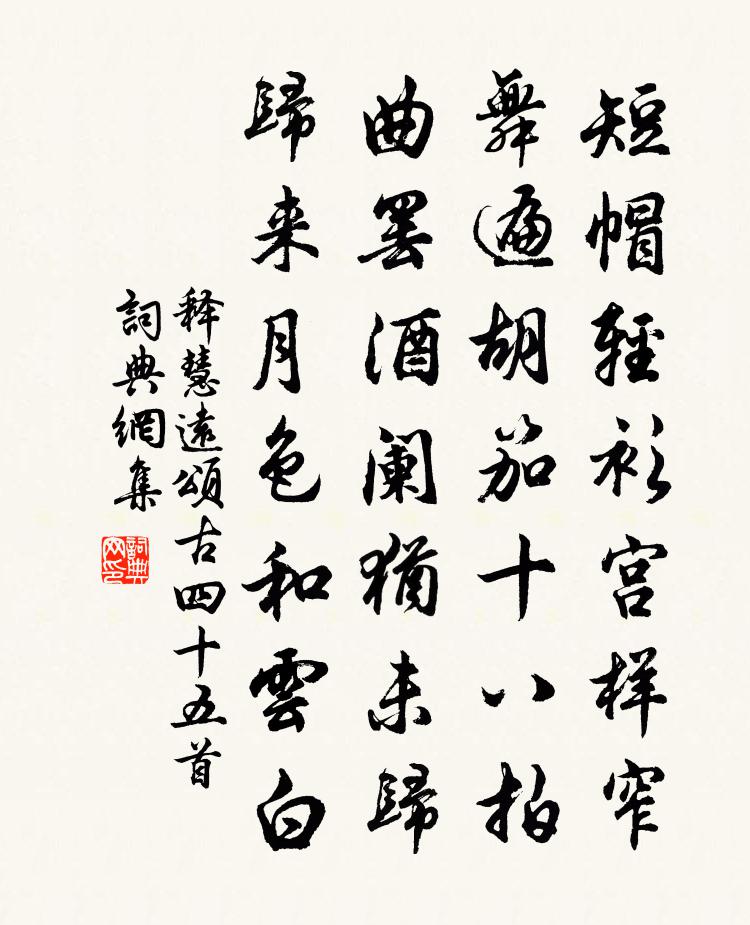 短帽輕衫宮样窄
舞遍胡笳十八拍
曲罢酒阑猶未歸
歸来月色和雲白
释慧遠頌古四十五首
詞典網集
詞典网印